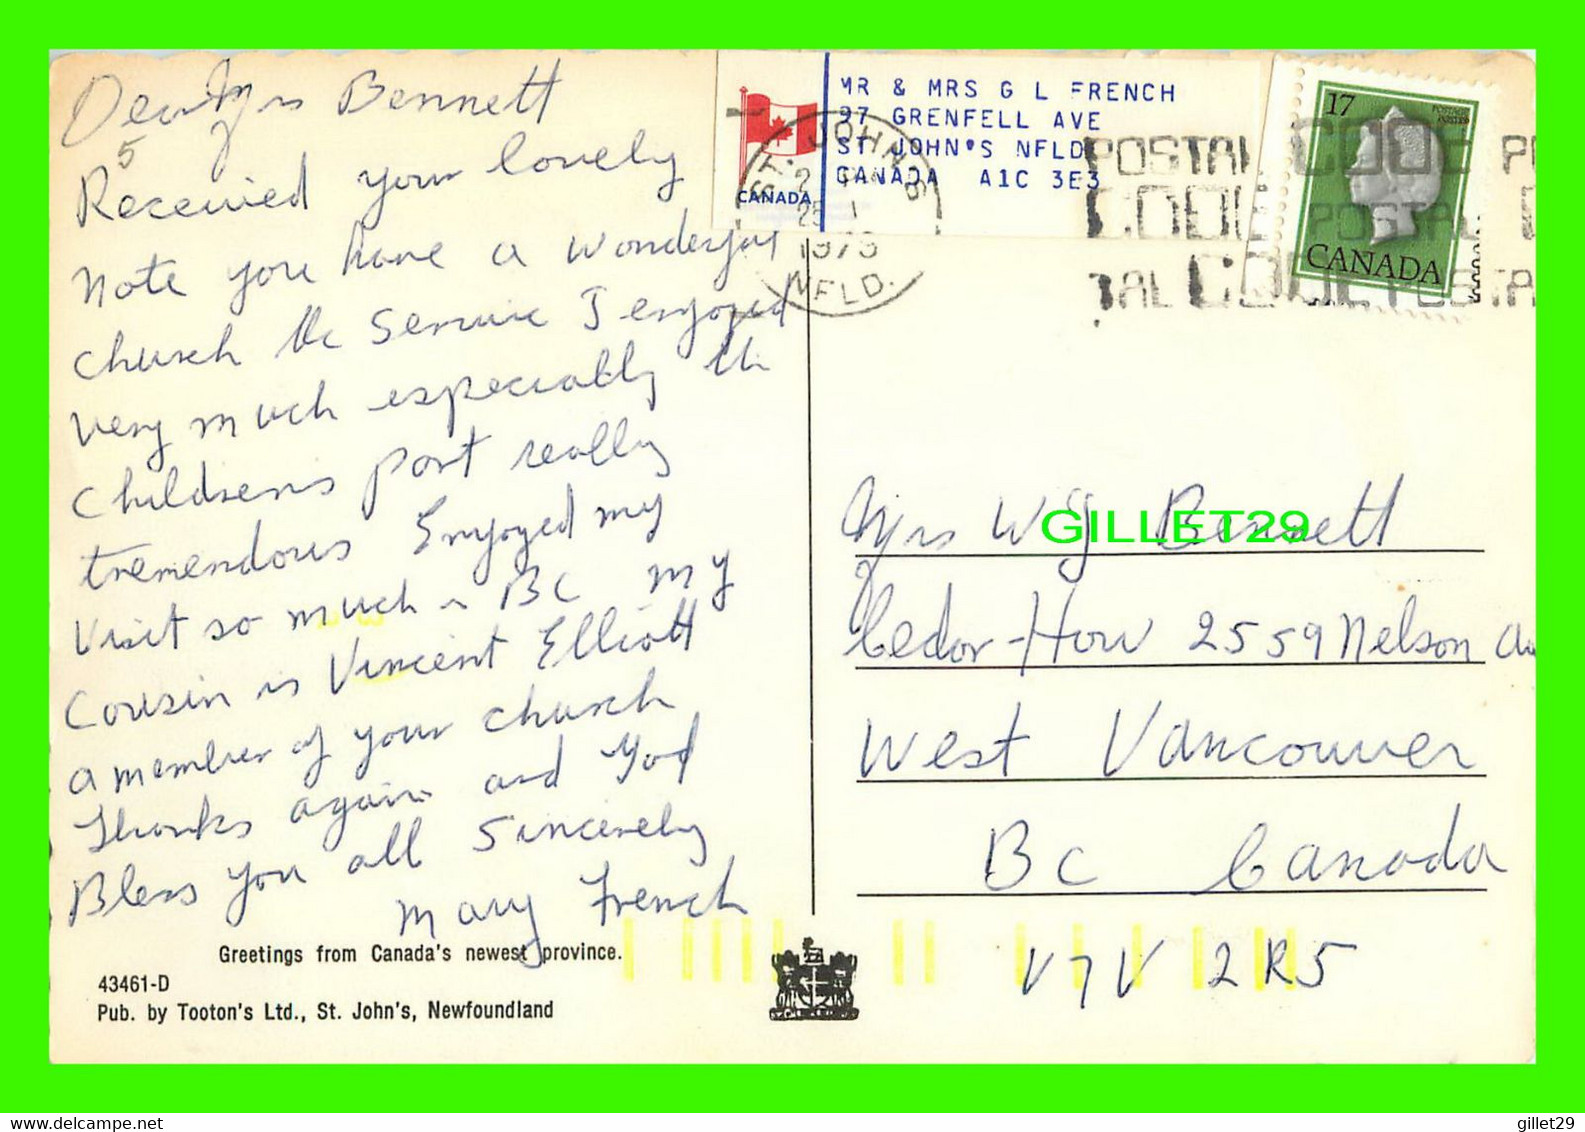 Dear Mrs Bennett
5
Received your lovely
note you have a wonderful
church the Service I enjoyed
very much especially the
Childrens part really
tremendous Enjoyed my
Visit so much in BC my
Cousin is Vincent Elliott
a member of your church
Thanks again and God
Bless you all Sincerely
Mary French
Greetings from Canada's newest province.
43461-D
Pub. by Tooton's Ltd., St. John's, Newfoundland
CANADA
MR & MRS G L FRENCH
97 GRENFELL AVE
ST JOHN'S NFLD
CANADA A1C 3E3
ST. JOHN'S
NFLD.
POSTAL CODE
17
POSTAGE
POSTES
CANADA
Mrs W J Bennett
GILLET29
Cedar-How 2559 Nelson
West Vancouver
BC Canada
V7V 2R5
gillet29